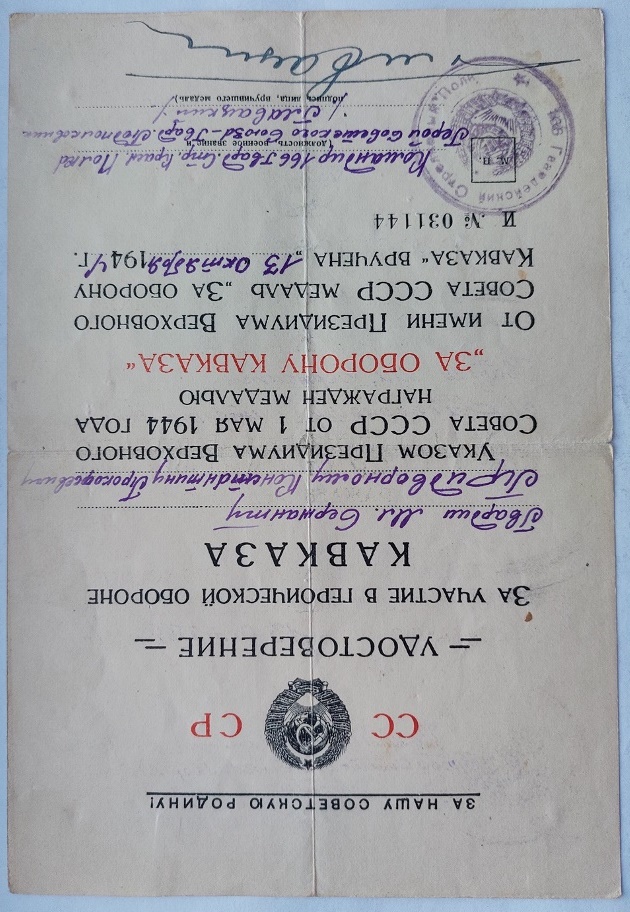 ЗА НАШУ СОВЕТСКУЮ РОДИНУ!
СС СР
— УДОСТОВЕРЕНИЕ —
ЗА УЧАСТИЕ В ГЕРОИЧЕСКОЙ ОБОРОНЕ
КАВКАЗА
Гвардии Мл. Сержанту
Придворному Константину Прокофьевичу
УКАЗОМ ПРЕЗИДИУМА ВЕРХОВНОГО
СОВЕТА СССР ОТ 1 МАЯ 1944 ГОДА
НАГРАЖДЕН МЕДАЛЬЮ
„ЗА ОБОРОНУ КАВКАЗА“
ОТ ИМЕНИ ПРЕЗИДИУМА ВЕРХОВНОГО
СОВЕТА СССР МЕДАЛЬ „ЗА ОБОРОНУ
КАВКАЗА“ ВРУЧЕНА „13 октября 1944 г.
И № 031144
М. П.
Командир 166 Гвард. Стр. Краснозн. Полка
(должность, военное звание и
Герой Советского Союза - Гвард. Подполковник
(Главацкий)
подпись лица, вручившего медаль)
166 Гвардейский Стрелковый Полк